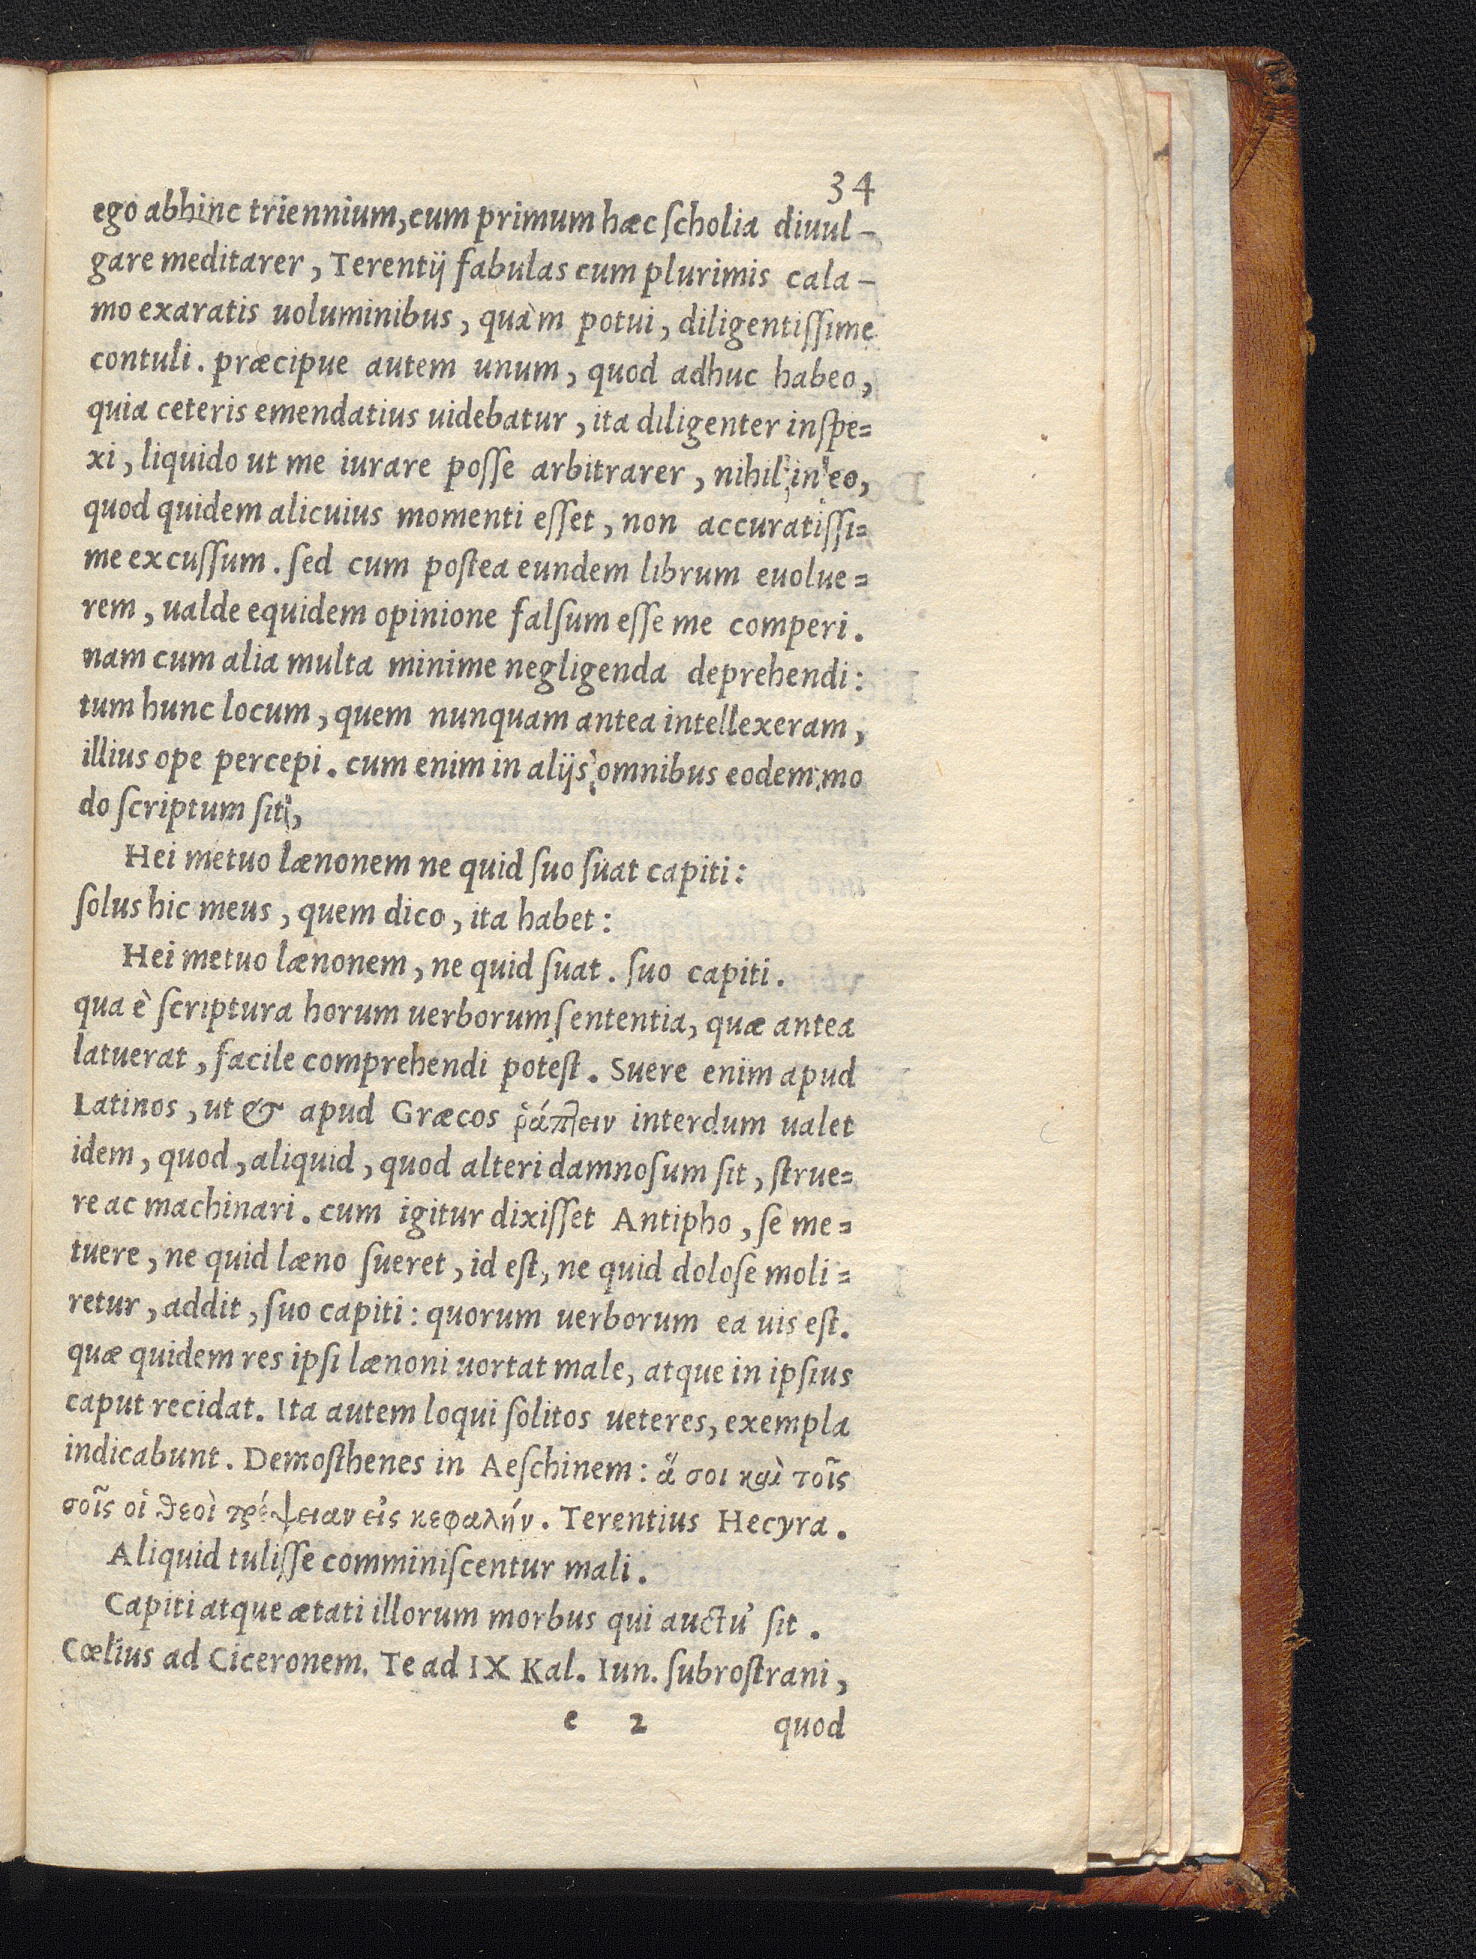 34
ego abhinc triennium, cum primum hæc ſcholia diuul-
gare meditarer, Terentij fabulas cum plurimis cala-
mo exaratis uoluminibus, quàm potui, diligentiſſime
contuli. præcipue autem unum, quod adhuc habeo,
quia ceteris emendatius uidebatur, ita diligenter inſpe=
xi, liquido ut me iurare poſſe arbitrarer, nihil in eo,
quod quidem alicuius momenti eſſet, non accuratiſſi=
me excuſſum. ſed cum poſtea eundem librum euolue=
rem, ualde equidem opinione falſum eſſe me comperi.
nam cum alia multa minime negligenda deprehendi:
tum hunc locum, quem nunquam antea intellexeram,
illius ope percepi. cum enim in alijs omnibus eodem mo
do ſcriptum ſit,
Hei metuo lænonem ne quid ſuo ſuat capiti:
ſolus hic meus, quem dico, ita habet:
Hei metuo lænonem, ne quid ſuat. ſuo capiti.
qua è ſcriptura horum uerborum ſententia, quæ antea
latuerat, facile comprehendi poteſt. Suere enim apud
Latinos, ut & apud Græcos ῥάπτειν interdum ualet
idem, quod, aliquid, quod alteri damnoſum ſit, ſtrue=
re ac machinari. cum igitur dixiſſet Antipho, ſe me=
tuere, ne quid læno ſueret, id eſt, ne quid doloſe moli=
retur, addit, ſuo capiti: quorum uerborum ea uis eſt.
quæ quidem res ipſi lænoni uortat male, atque in ipſius
caput recidat. Ita autem loqui ſolitos ueteres, exempla
indicabunt. Demoſthenes in Aeſchinem: ἅ σοι καὶ τοῖς
σοῖς οἱ θεοὶ τρέψειαν εἰς κεφαλήν. Terentius Hecyra.
Aliquid tuliſſe comminiſcentur mali.
Capiti atque ætati illorum morbus qui auctu' ſit.
Cœlius ad Ciceronem. Te ad IX Kal. Iun. ſubroſtrani,
e 2 quod